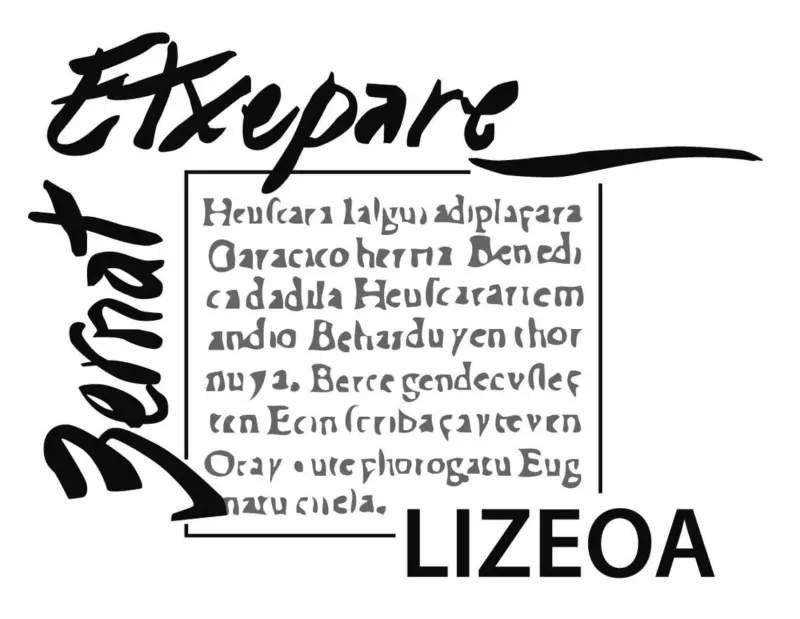 Etxepare
Bernat
Heuſcara ialgui adi plaçara
Garacico herria Benedi
cadadila Heuſcarari em
andio Beharduyen thor
nuya. Berce gendec vſteç
ten Ecin ſcriba çayteyen
Oray dute phorogatu Eug
natu cirela.
LIZEOA